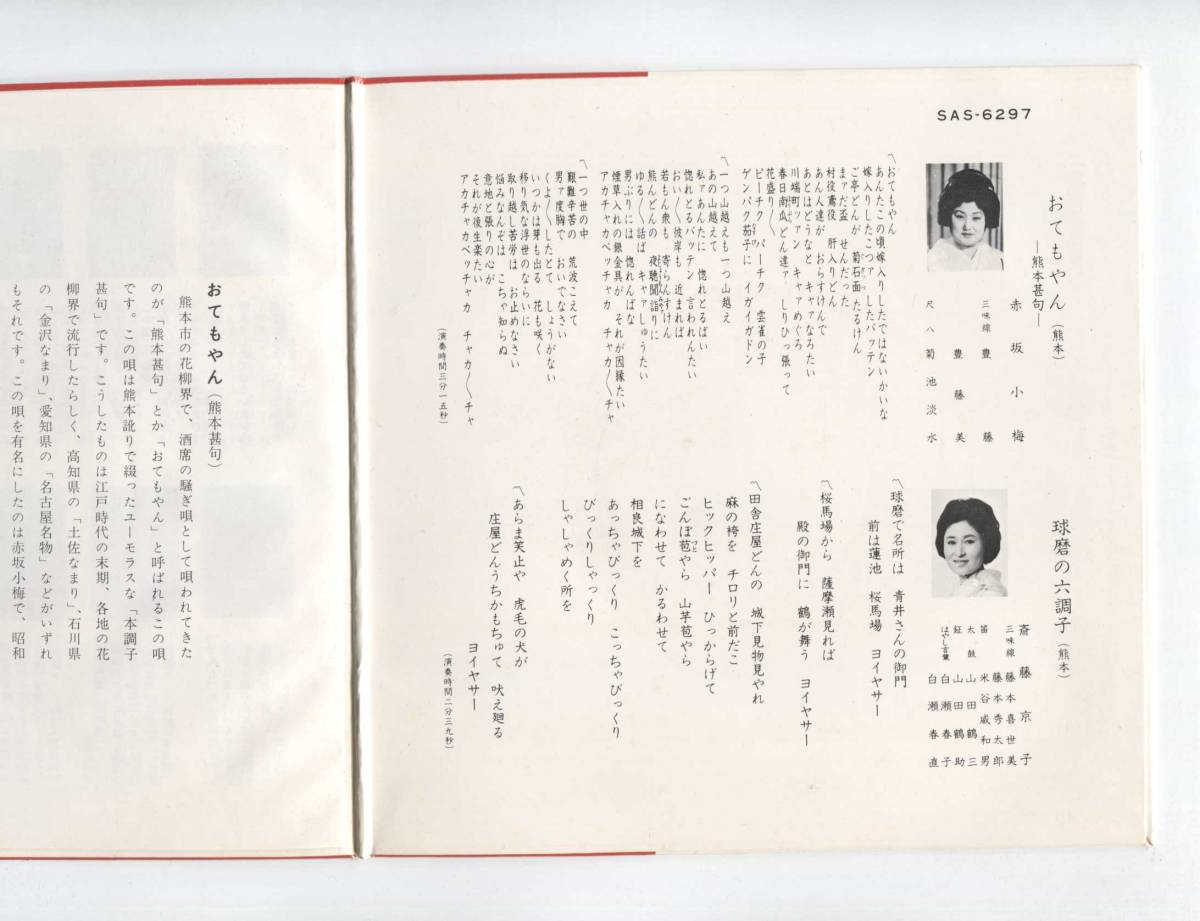 SAS-6297
おてもやん(熊本)
―熊本甚句―
赤坂小梅
三味線 豊藤
豊藤美
尺八 菊池淡水
〽おてもやん
あんたこの頃嫁入りしたではないかいな
嫁入りしたこつァしたバッテン
ご亭どんが 菊石面たるけん
まァだ盃 せんだった
村役鳶役 肝入りどん
あん人達が おらすけんで
あとはどうなと キャァなろたい
川端町ツァン キャァめぐろ
春日南瓜どん達ァ しりひっ張って
花盛り〱
ピーチク パーチク 雲雀の子
ゲンパク茄子に イガイガドン
〽一つ山越えも一つ山越え
あの山越えて
私ァあんたに 惚れとるばい
惚れとるバッテン 言われんたい
おい〱彼岸も 近まれば
若もん衆も 寄らんすけん
熊んどんの 夜聴聞詣りに
ゆる〱話ば キャァしゅうたい
男ぶりには 惚れんばな
煙草入れの銀金具が それが因縁たい
アカチャカベッチャカ チャカ〱チャ
〽一つ世の中
艱難辛苦の 荒波こえて
男ァ度胸で おいでなさい
くよ〱したとて しょうがない
いつかは芽も出る 花も咲く
移り気な浮世のならいに
取り越し苦労は お止めなさい
悩みなんぞは こちゃ知らぬ
意地と張りの心が
それが後生楽たい
アカチャカベッチャカ チャカ〱チャ
(演奏時間三分一五秒)
球磨の六調子(熊本)
斎藤京子
三味線 藤本喜世美
藤本秀太郎
笛 米谷威和男
太鼓 山田鶴三
鉦 山田鶴助
はやし言葉 白瀬春子
白瀬春直
〽球磨で名所は 青井さんの御門
前は蓮池 桜馬場 ヨイヤサー
〽桜馬場から 薩摩瀬見れば
殿の御門に 鶴が舞う ヨイヤサー
〽田舎庄屋どんの 城下見物見やれ
麻の袴を チロリと前だこ
ヒックヒッパー ひっからげて
ごんぼ苞やら 山芋苞やら
になわせて かるわせて
相良城下を
あっちゃびっくり こっちゃびっくり
びっくりしゃっくり
しゃしゃめく所を
〽あらま笑止や 虎毛の犬が
庄屋どんうちかもちゅて 吠え廻る
ヨイヤサー
(演奏時間二分三九秒)
おてもやん(熊本甚句)
熊本市の花柳界で、酒席の騒ぎ唄として唄われてきた
のが「熊本甚句」とか「おてもやん」と呼ばれるこの唄
です。この唄は熊本訛りで綴ったユーモラスな「本調子
甚句」です。こうしたものは江戸時代の末期、各地の花
柳界で流行したらしく、高知県の「土佐なまり」、石川県
の「金沢なまり」、愛知県の「名古屋名物」などがいずれ
もそれです。この唄を有名にしたのは赤坂小梅で、昭和